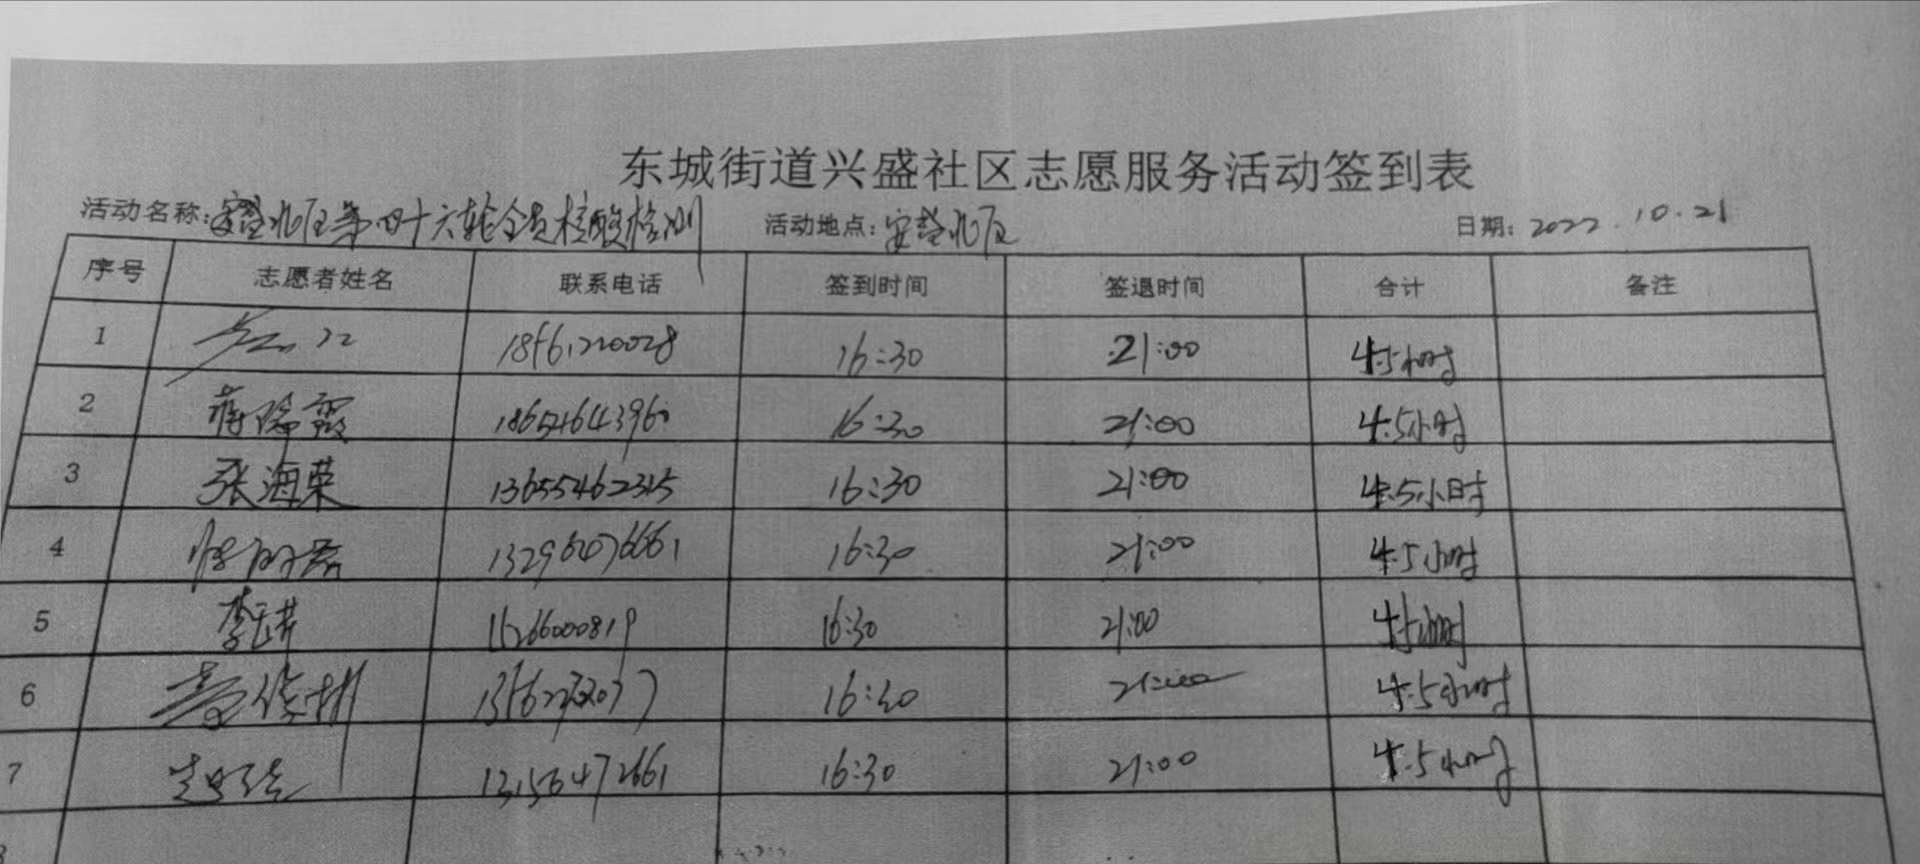 东城街道兴盛社区志愿服务活动签到表
活动名称: 安登北区第四十六轮全员核酸检测 活动地点: 安登北区 日期: 2022.10.21
序号 志愿者姓名 联系电话 签到时间 签退时间 合计 备注
1 16:30 21:00 4.5小时
2 蒋瑞霞 18654643960 16:30 21:00 4.5小时
3 张海荣 13655462315 16:30 21:00 4.5小时
4 16:30 21:00 4.5小时
5 李玉芹 15266000819 16:30 21:00 4.5小时
6 16:30 21:00 4.5小时
7 13156472661 16:30 21:00 4.5小时